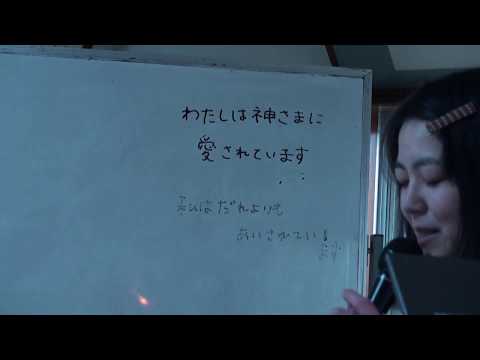 わたしは神さまに
愛されています
私はだれよりも
あいされている